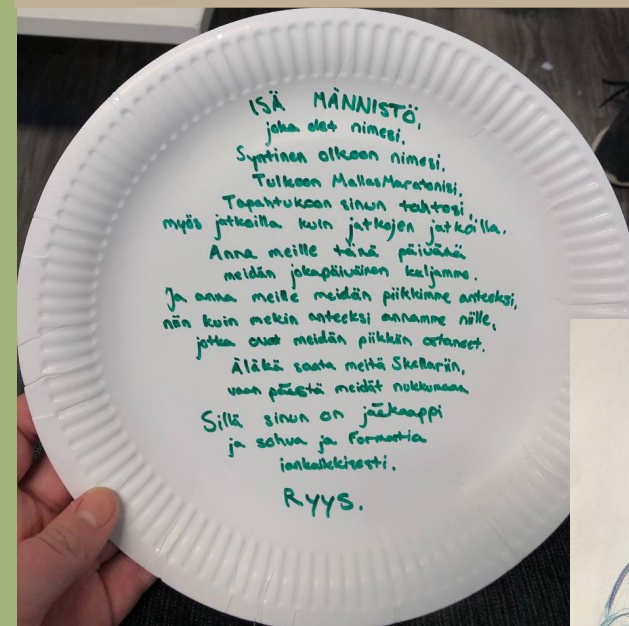 ISÄ MÄNNISTÖ,
joka olet nimesi.
Syntinen olkoon nimesi.
Tulkoon MallasMaratonisi,
Tapahtukoon sinun tahtosi,
myös jatkoilla kuin jatkojen jatkoilla.
Anna meille tänä päivänä
meidän jokapäiväinen kaljamme.
Ja anna meille meidän piikkimme anteeksi,
niin kuin mekin anteeksi annamme niille,
jotka ovat meidän piikkiin ostaneet.
Äläkä saata meitä Skellariin,
vaan päästä meidät nukkumaan
Sillä sinun on jääkaappi
ja sohva ja Formatia
iankaikkisesti.
RYYS.